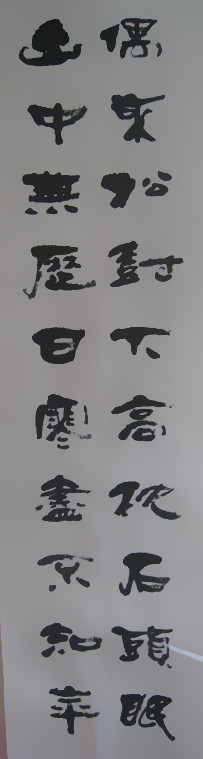 偶來松尌下高枕石頭眠
山中無歷日寒盡不知年